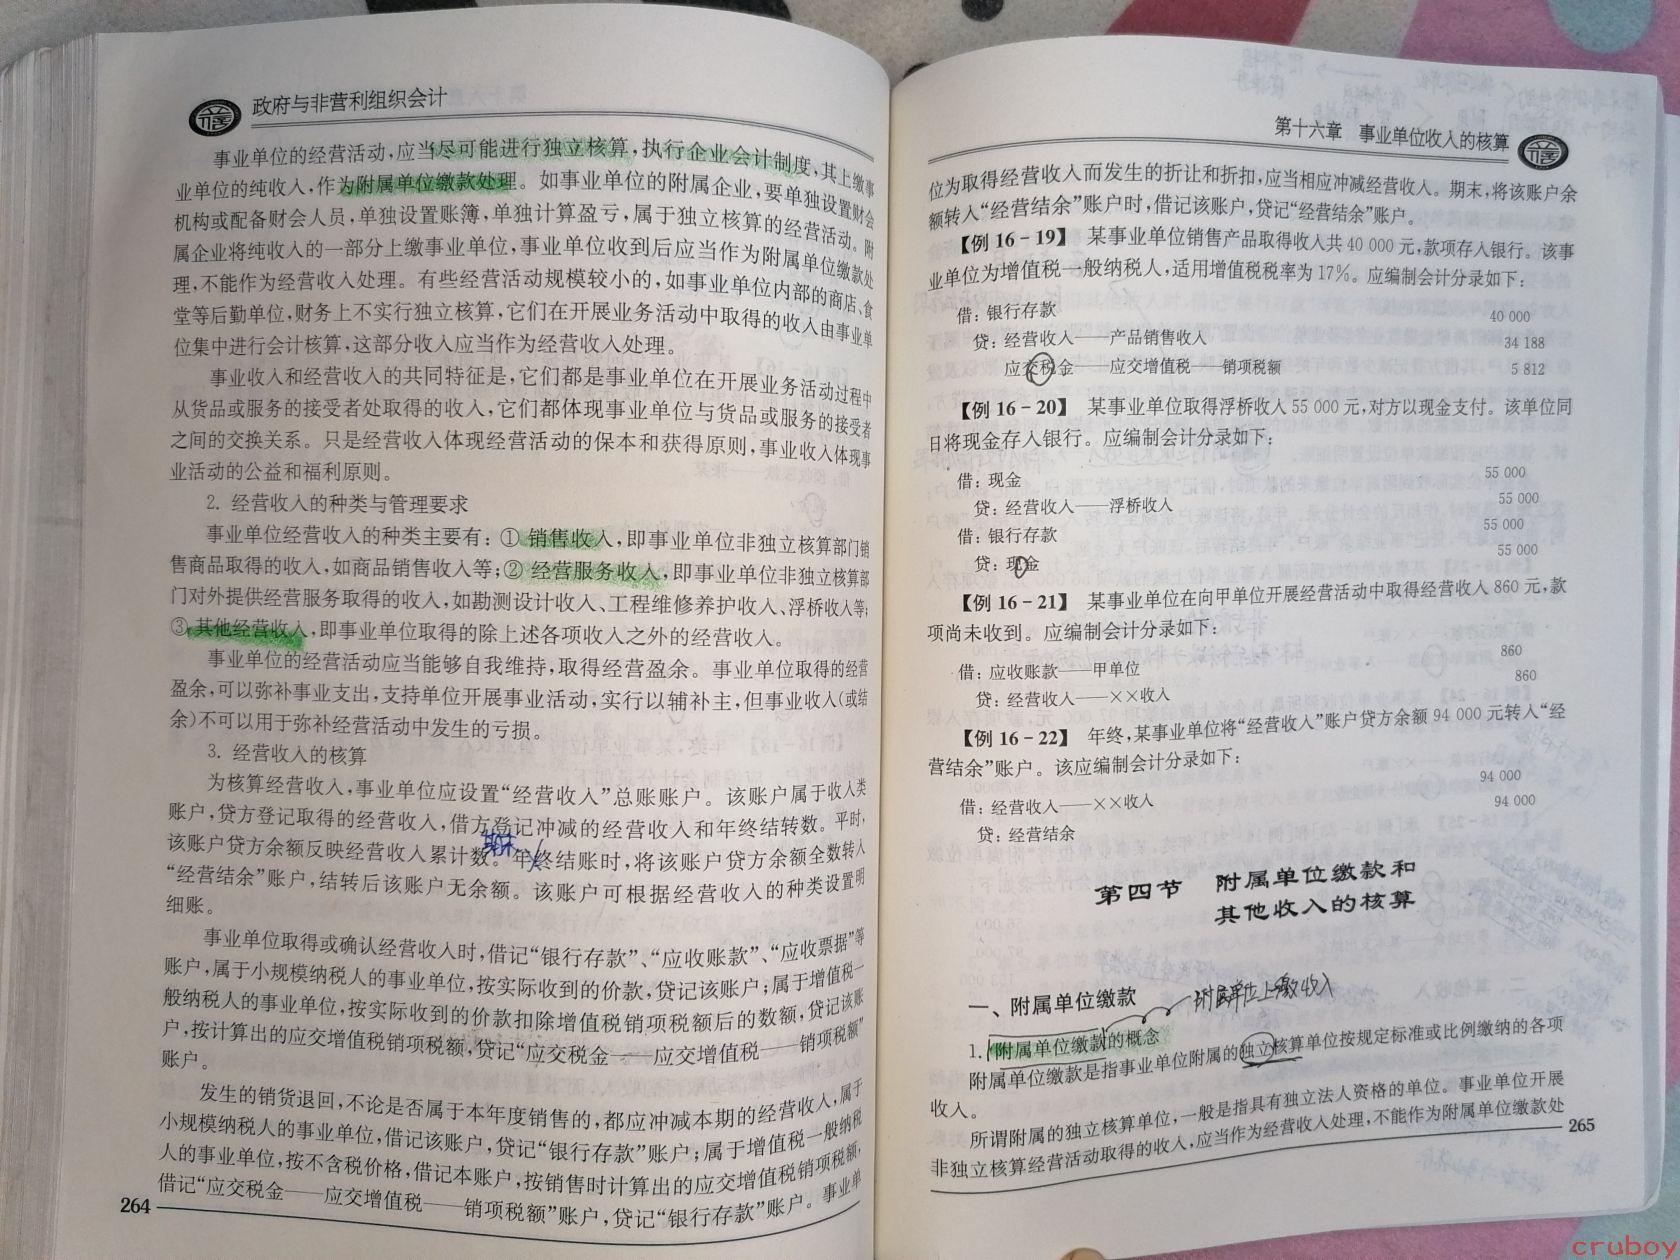 政府与非营利组织会计
事业单位的经营活动,应当尽可能进行独立核算,执行企业会计制度,其上缴事
业单位的纯收入,作为附属单位缴款处理。如事业单位的附属企业,要单独设置财会
机构或配备财会人员,单独设置账簿,单独计算盈亏,属于独立核算的经营活动。附
属企业将纯收入的一部分上缴事业单位,事业单位收到后应当作为附属单位缴款处
理,不能作为经营收入处理。有些经营活动规模较小的,如事业单位内部的商店、食
堂等后勤单位,财务上不实行独立核算,它们在开展业务活动中取得的收入由事业单
位集中进行会计核算,这部分收入应当作为经营收入处理。
事业收入和经营收入的共同特征是,它们都是事业单位在开展业务活动过程中
从货品或服务的接受者处取得的收入,它们都体现事业单位与货品或服务的接受者
之间的交换关系。只是经营收入体现经营活动的保本和获得原则,事业收入体现事
业活动的公益和福利原则。
2. 经营收入的种类与管理要求
事业单位经营收入的种类主要有:① 销售收入,即事业单位非独立核算部门销
售商品取得的收入,如商品销售收入等;② 经营服务收入,即事业单位非独立核算部
门对外提供经营服务取得的收入,如勘测设计收入、工程维修养护收入、浮桥收入等;
③ 其他经营收入,即事业单位取得的除上述各项收入之外的经营收入。
事业单位的经营活动应当能够自我维持,取得经营盈余。事业单位取得的经营
盈余,可以弥补事业支出,支持单位开展事业活动,实行以辅补主,但事业收入(或结
余)不可以用于弥补经营活动中发生的亏损。
3. 经营收入的核算
为核算经营收入,事业单位应设置“经营收入”总账账户。该账户属于收入类
账户,贷方登记取得的经营收入,借方登记冲减的经营收入和年终结转数。平时,
期末
该账户贷方余额反映经营收入累计数。年终结账时,将该账户贷方余额全数转入
“经营结余”账户,结转后该账户无余额。该账户可根据经营收入的种类设置明
细账。
事业单位取得或确认经营收入时,借记“银行存款”、“应收账款”、“应收票据”等
账户,属于小规模纳税人的事业单位,按实际收到的价款,贷记该账户;属于增值税一
般纳税人的事业单位,按实际收到的价款扣除增值税销项税额后的数额,贷记该账
户,按计算出的应交增值税销项税额,贷记“应交税金——应交增值税——销项税额”
账户。
发生的销货退回,不论是否属于本年度销售的,都应冲减本期的经营收入,属于
小规模纳税人的事业单位,借记该账户,贷记“银行存款”账户;属于增值税一般纳税
人的事业单位,按不含税价格,借记本账户,按销售时计算出的应交增值税销项税额,
借记“应交税金——应交增值税——销项税额”账户,贷记“银行存款”账户。事业单
264
第十六章 事业单位收入的核算
位为取得经营收入而发生的折让和折扣,应当相应冲减经营收入。期末,将该账户余
额转入“经营结余”账户时,借记该账户,贷记“经营结余”账户。
【例 16-19】 某事业单位销售产品取得收入共 40 000 元,款项存入银行。该事
业单位为增值税一般纳税人,适用增值税税率为 17%。应编制会计分录如下:
借:银行存款 40 000
贷:经营收入——产品销售收入 34 188
应交税金——应交增值税——销项税额 5 812
【例 16-20】 某事业单位取得浮桥收入 55 000 元,对方以现金支付。该单位同
日将现金存入银行。应编制会计分录如下:
借:现金 55 000
贷:经营收入——浮桥收入 55 000
借:银行存款 55 000
贷:现金 55 000
【例 16-21】 某事业单位在向甲单位开展经营活动中取得经营收入 860 元,款
项尚未收到。应编制会计分录如下:
借:应收账款——甲单位 860
贷:经营收入——××收入 860
【例 16-22】 年终,某事业单位将“经营收入”账户贷方余额 94 000 元转入“经
营结余”账户。该应编制会计分录如下:
借:经营收入——××收入 94 000
贷:经营结余 94 000
第四节 附属单位缴款和
其他收入的核算
一、附属单位缴款 附属单位上缴收入
1. 附属单位缴款的概念
附属单位缴款是指事业单位附属的独立核算单位按规定标准或比例缴纳的各项
收入。
所谓附属的独立核算单位,一般是指具有独立法人资格的单位。事业单位开展
非独立核算经营活动取得的收入,应当作为经营收入处理,不能作为附属单位缴款处
265
cruboy